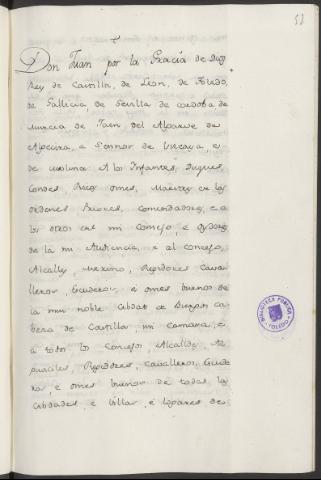 52
Don Juan por la Gracia de Dios
Rey de Castilla, de Leon, de Toledo,
de Gallicia, de Sevilla de cordoba de
Murcia de Jaen del Algarve de
Algecira, e Sennor de Vizcaya, e
de molina A los Infantes, Duques,
Condes Ricos omes, Maestres de las
ordenes Priores, comendadores, e a
los otros del mi Consejo, e oydores
de la mi Audiencia e al consejo,
Alcalles, merino, Regidores Cava
lleros, Escuderos, e omes buenos de
la mui noble cibdat de Burgos ca
beza de Castilla, mi camara, e
a todos los Consejos Alcaldes Al
guaciles, Regidores, Cavalleros, Escude
ros, e omes buenos de todas las
cibdades, e villas, e logares de
BIBLIOTECA PUBLICA
TOLEDO